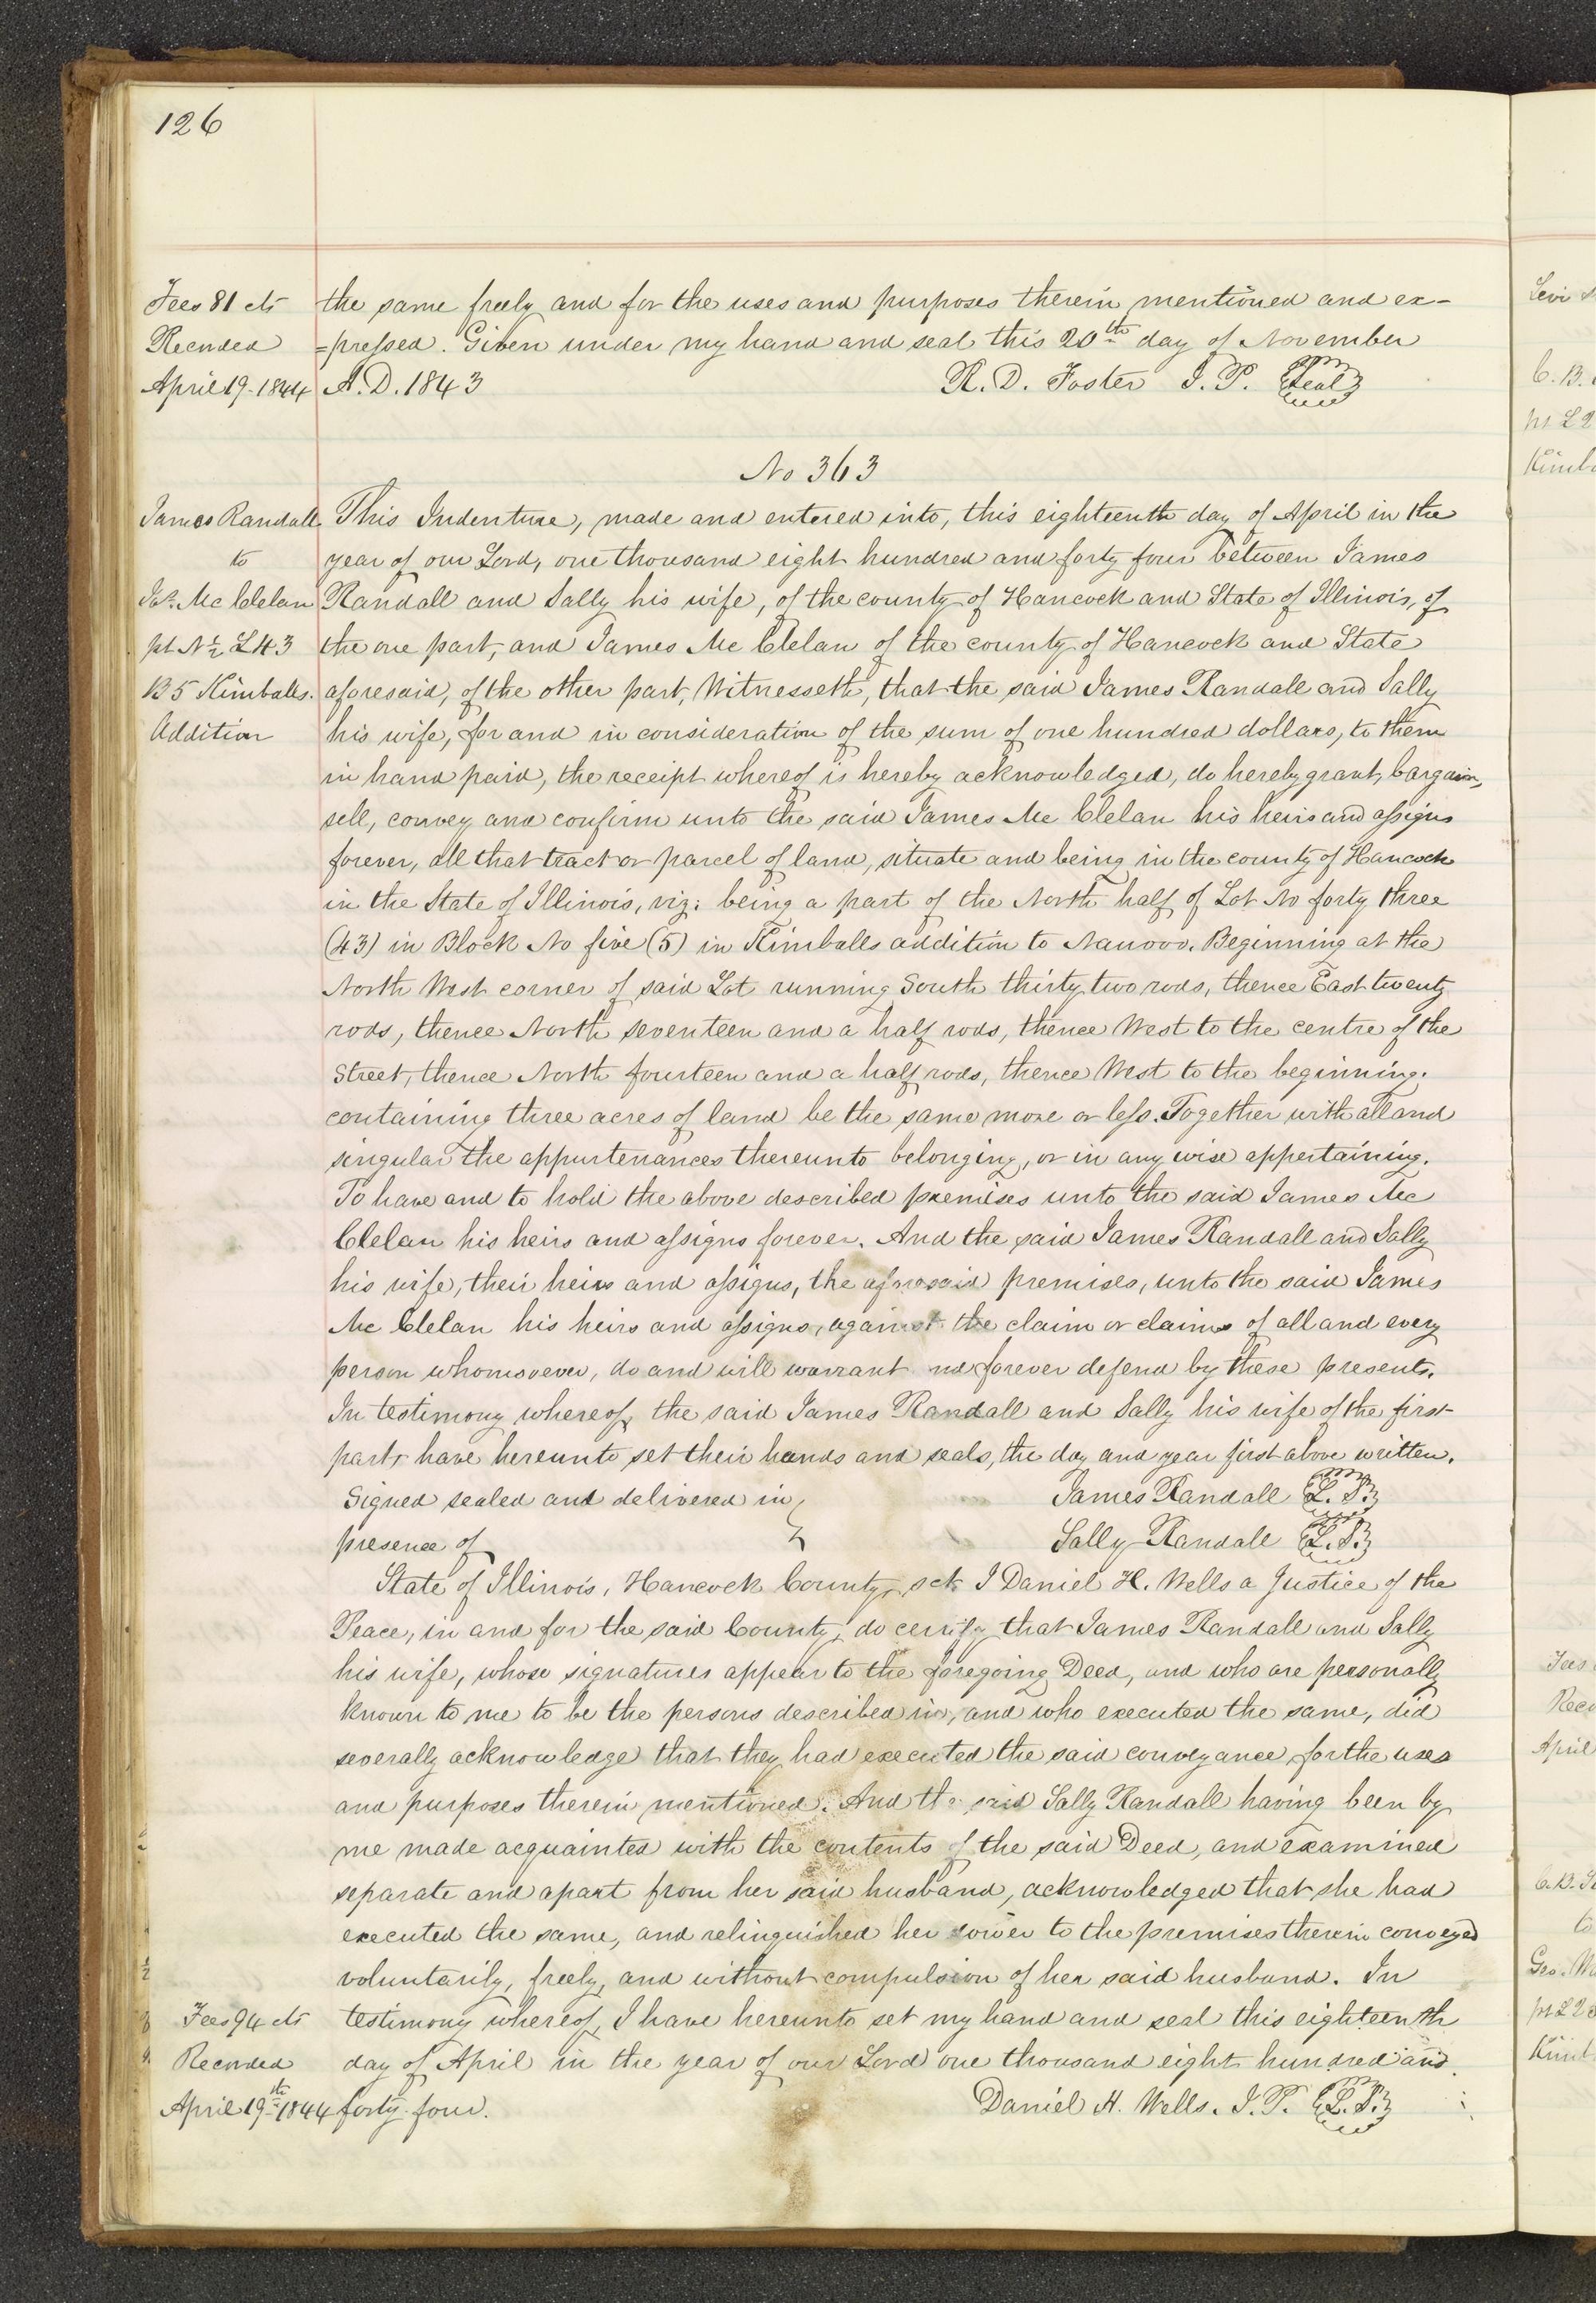 126
Fees 81 cts the same freely and for the uses and purposes therein mentioned and ex-
Recorded =pressed. Given under my hand and seal this 20th day of November
April 19. 1844 A. D. 1843 R. D. Foster J. P. Seal
No 363
James Randall This Indenture, made and entered into, this eighteenth day of April in the
to year of our Lord, one thousand eight hundred and forty four between James
Jas. Mc Clelan Randall and Sally his wife, of the county of Hancock and State of Illinois, of
pt N ½ L 43 the one part, and James Mc Clelan of the county of Hancock and State
B 5 Kimballs. aforesaid, of the other part, Witnesseth, that the said James Randall and Sally
Addition his wife, for and in consideration of the sum of one hundred dollars, to them
in hand paid, the receipt whereof is hereby acknowledged, do hereby grant, bargain,
sell, convey and confirm unto the said James Mc Clelan his heirs and assigns
forever, all that tract or parcel of land, situate and being in the county of Hancock
in the State of Illinois, viz: being a part of the North half of Lot No forty three
(43) in Block No five (5) in Kimballs addition to Nauvoo. Beginning at the
North West corner of said Lot running South thirty two rods, thence East twenty
rods, thence North seventeen and a half rods, thence West to the centre of the
street, thence North fourteen and a half rods, thence West to the beginning.
containing three acres of land be the same more or less. Together with all and
singular the appurtenances thereunto belonging, or in any wise appertaining.
To have and to hold the above described premises unto the said James Mc
Clelan his heirs and assigns forever. And the said James Randall and Sally
his wife, their heirs and assigns, the aforesaid premises, unto the said James
Mc Clelan his heirs and assigns, against the claim or claims of all and every
person whomsoever, do and will warrant nd forever defend by these presents.
In testimony whereof, the said James Randall and Sally his wife of the first
part, have hereunto set their hands and seals, the day and year first above written.
Signed sealed and delivered in James Randall L. S.
presence of Sally Randall L. S.
State of Illinois, Hancock County, sct. I Daniel H. Wells a Justice of the
Peace, in and for the said County, do certify that James Randall and Sally
his wife, whose signatures appear to the foregoing Deed, and who are personally
known to me to be the persons described in, and who executed the same, did
severally acknowledge that they had executed the said conveyance for the uses
and purposes therein mentioned. And the said Sally Randall having been by
me made acquainted with the contents of the said Deed, and examined
separate and apart from her said husband, acknowledged that she had
executed the same, and relinquished her dower to the premises therein conveyed
voluntarily, freely, and without compulsion of her said husband. In
Fees 94 cts testimony whereof, I have hereunto set my hand and seal this eighteenth
Recorded day of April in the year of our Lord one thousand eight hundred and
April 19th 1844 forty four. Daniel H. Wells. J. P. L. S.
Levi
C. B.
pt L 2
Kimb
Fees
Reco
April
C. B. St
to
Geo. Mc
pt L 2
Kimb